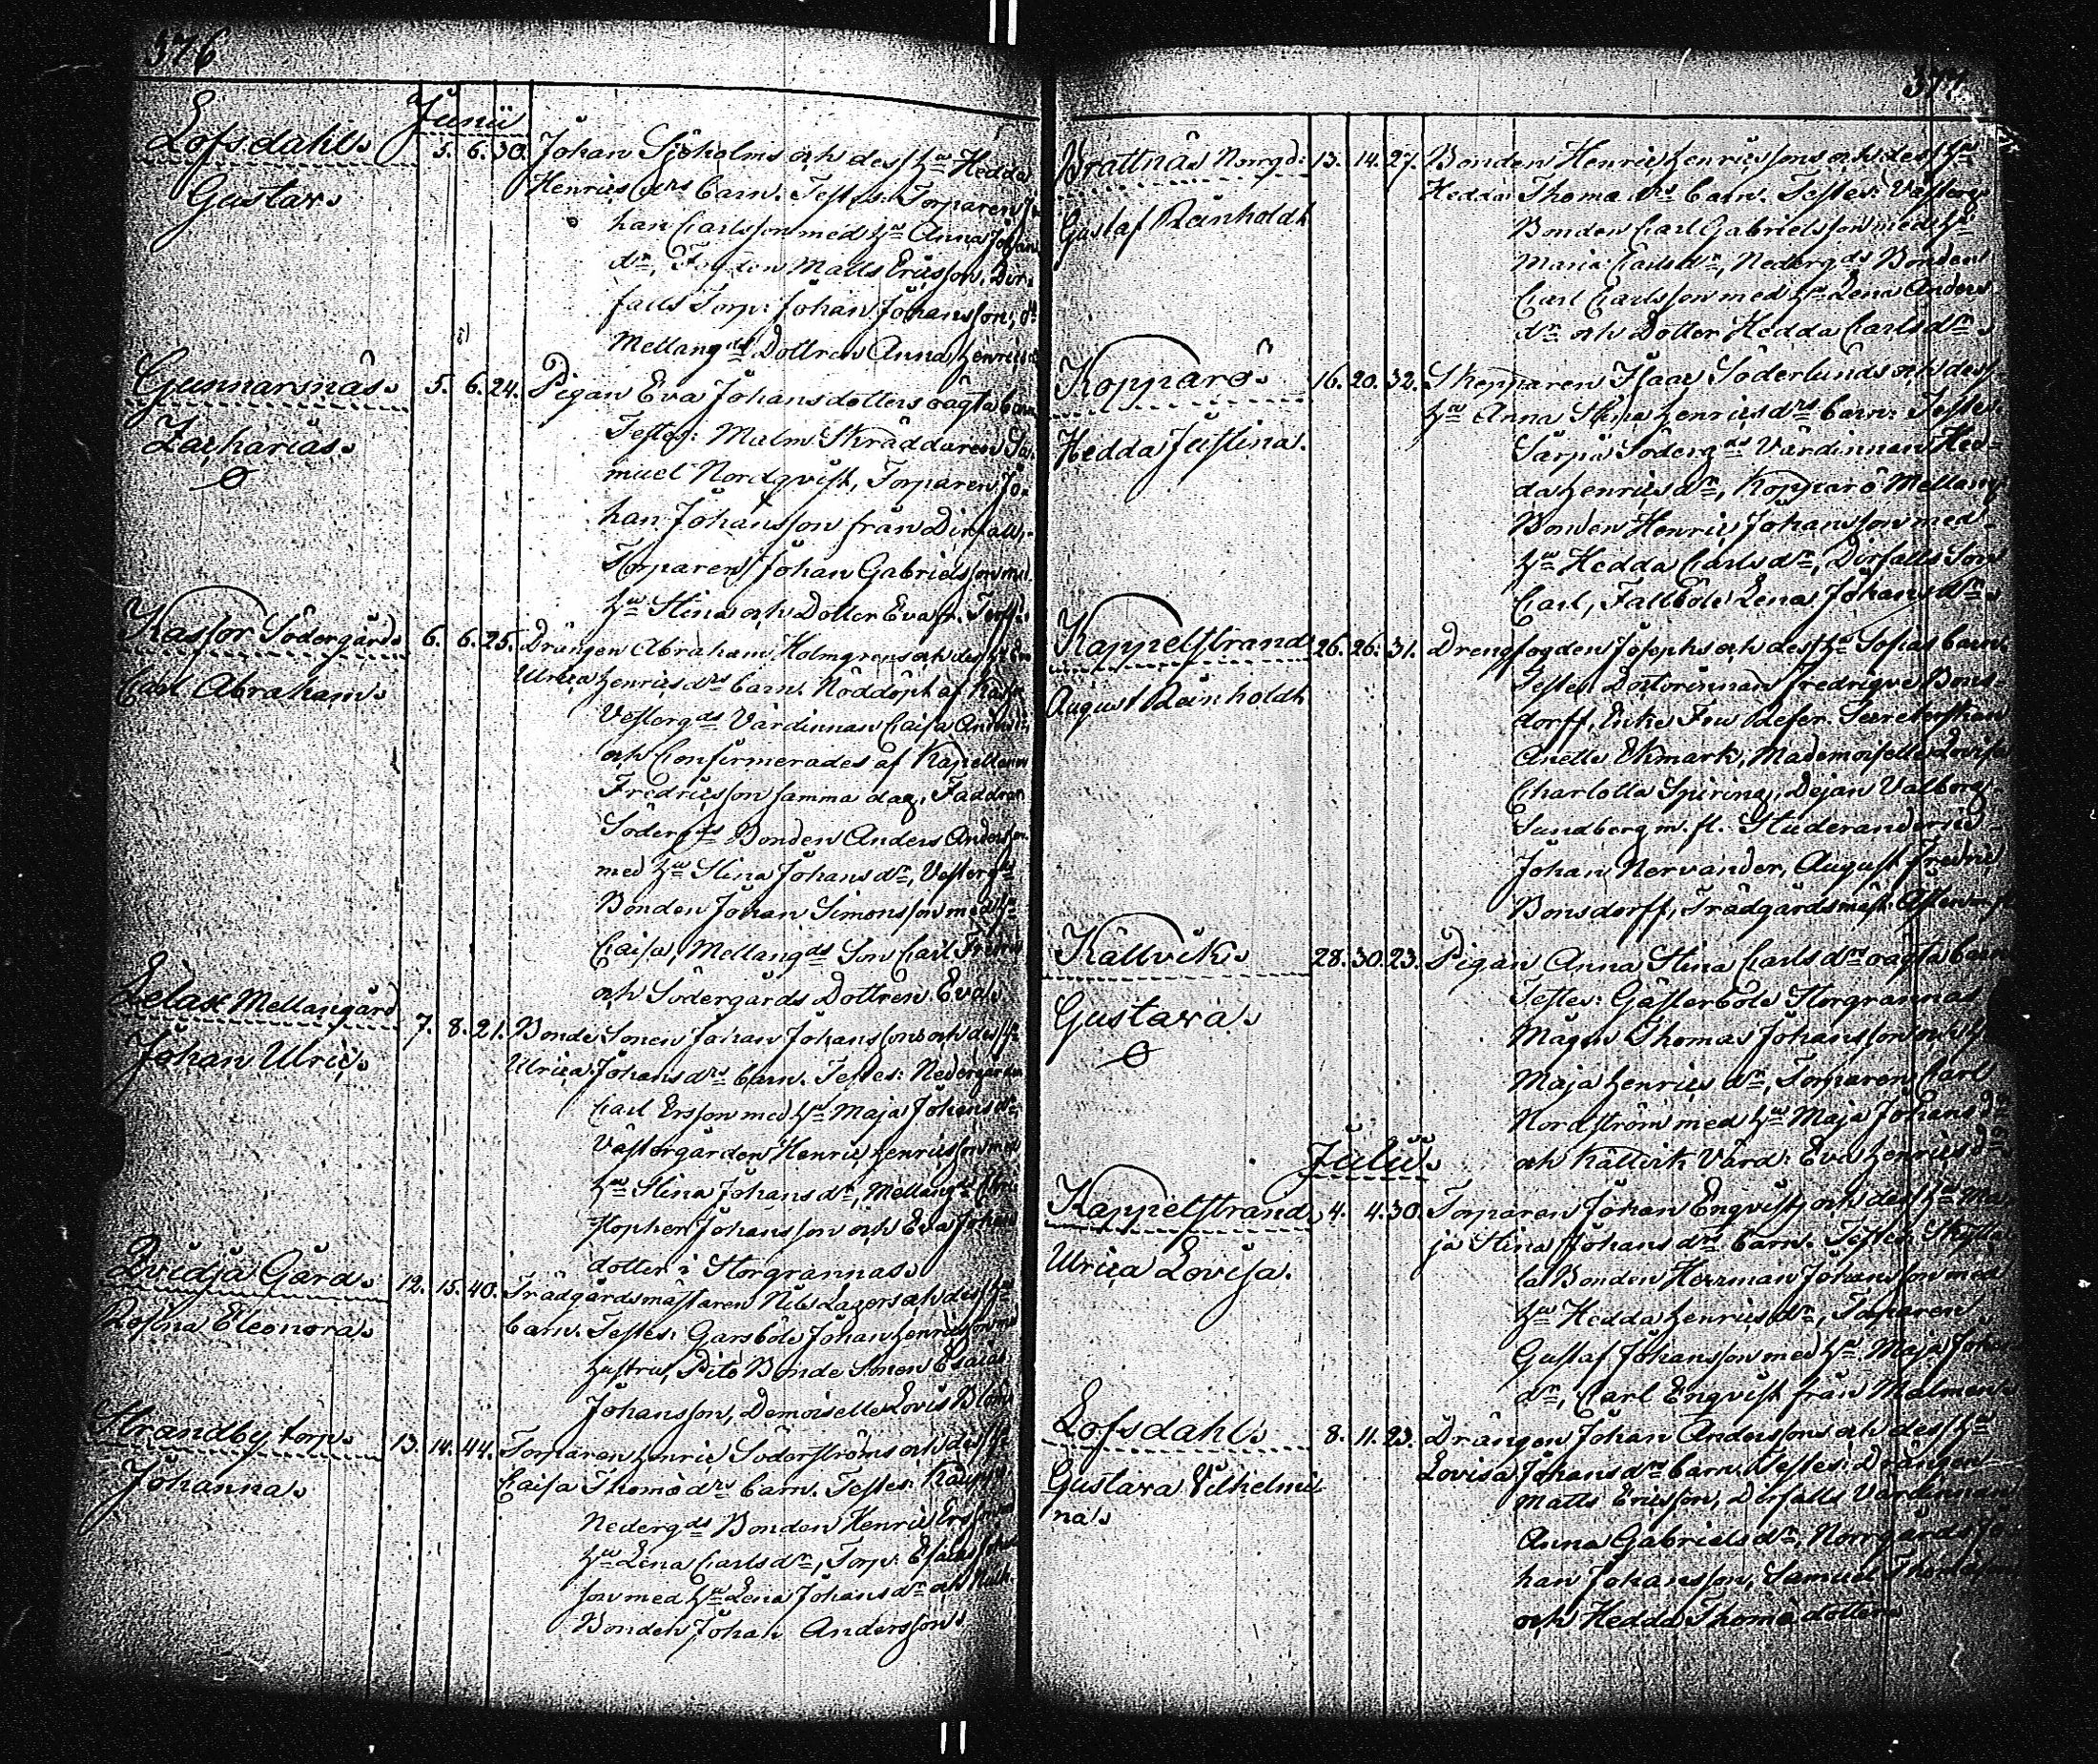 376
Junii
Lofsdahl.
Gustav.
5. 6. 30. Johan Sjöholms och dess hu Hedda
Henrics drs barn. Testes: Torparen Jo
han Carlsson med hu Anna Johans
dr, Matts Ericsson, Dir-
falls Torp: Johan Johansson, och
Mellangds Dottren Anna Henrics
Gunnarsnäs.
Zacharias.
5. 6. 24. Pigan Eva Johansdotters oägta barn
Testes: Malm Skräddaren Sa-
muel Nordqvist, Torparen Jo-
han Johansson från Dirfall,
Torparen Johan Gabrielsson med
hu Stina och Dotter Eva
Kasfor Södergård.
Carl Abraham.
6. 6. 25. Drängen Abraham Holmgrens och dess hu
Ulrica Henrics drs barn. Nöddöpt af
Vestergds Värdinnan Caisa
och Confirmerades af Kapellanen
Fredricsson samma dag, Faddrar
Södergds Bonden Anders Andersson
med hu Stina Johans dr, Vestergds
Bonden Johan Simonsson med hu
Caisa, Mellangds Son Carl
och Södergårds Dottren Eva.
Mellangård
Johan Ulric.
7. 8. 21. Bonde Sonen Johan Johanssons och dess hu
Ulrica Johans drs barn. Testes: Nedergården
Carl Ersson med hu Maja Johans dr
Västergården Henric Henricsson med
hu Stina Johans dr, Mellangds Chri-
stopher Johansson och Eva Johans
dotter i Storgrannas.
Qvidja Gård.
Rosina Eleonora.
12. 15. 40. Trädgårdsmästaren Nils Lagers och dess hu
barn. Testes: Garsböle Johan Henricsson med
hustru, Bonde Sonen Esaias
Johansson, Demoiselle Lovis
Strandby torp.
Johanna.
13. 14. 44. Torparen Henric Söderströms och dess hu
Caisa Thomæ drs barn. Testes:
Nedergds Bonden Henric Ersson
hu Lena Carls dr, Torp: Esaias
son med hu Lena Johans dr och
Bonden Johan Andersson.
377
Brattnäs Norrgd:
Gustaf Reinholdt
13. 14. 27. Bonden Henric Henricssons och dess hu
Hedda Thomæ drs barn. Testes: Västerg
Bonden Carl Gabrielsson med hu
Maria Carls dr, Nedergds Bonden
Carl Carlsson med hu Lena Anders
dr och Dotter Hedda Carls dr.
Kopparö.
Hedda Justina.
16. 20. 32. Skepparen Isaac Söderlunds och dess
hu Anna Stina Henrics drs barn: Testes:
Särpä Södergds Värdinnan Hed-
da Henrics dr, Kopparö Mellang
Bonden Henric Johansson med
hu Hedda Carls dr, Dirfalls Son
Carl, Fallböle Lena Johans dr.
Kappelstrand
August Reinholdt
26. 26. 31. Drengfogden Josephs och dess hu Sofias barn.
Testes: Doctorinnan Fredrique Bons-
dorff, Enke Fru Refer. Secreterskan
Anette Ekmark, Mademoiselle Lovisa
Charlotta Spiring, Dejan Valborg
Sundberg m. fl. Studeranderne
Johan Nervander, August Fredric
Bonsdorff, Trädgårdsmäst:
Källvik.
Gustava.
28. 30. 23. Pigan Anna Stina Carls drs oägta barn
Testes: Gästerböle Storgrannas
Mågen Thomas Johansson och hu
Maja Henrics dr, Torparen Carl
Nordström med hu Maja Johans dr
och Källvik Värd: Eva Henrics dr
Julii.
Kappelstrand
Ulrica Lovisa.
4. 4. 30. Torparen Johan Enqvists och dess hu Ma-
ja Stina Johans drs barn. Testes:
Bonden Herrman Johansson med
hu Hedda Henrics dr, Torparen
Gustaf Johansson med hu Maja Johans
dr, Carl Enqvist från Malmen.
Lofsdahl.
Gustava Vilhelmi-
na.
8. 11. 23. Drängen Johan Anderssons och dess hu
Lovisa Johans drs barn. Testes: Drängen
Matts Ericsson, Dirfalls Värdinnan
Anna Gabriels dr, Norrgårds Jo
han Johansson, Samuel
och Hedda Thomædotter.